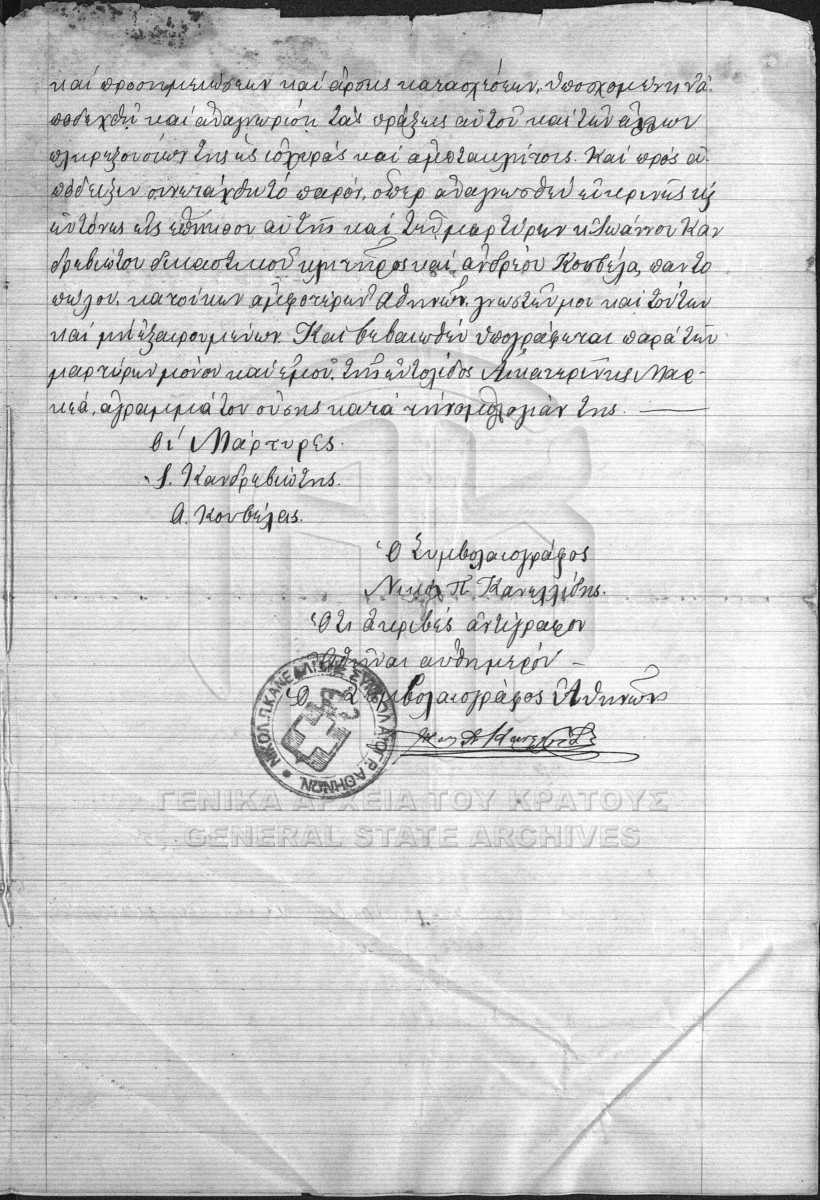 και προσημειώσεων και άρσεις κατασχέσεων, υποσχομένη να
αποδεχθή και αναγνωρίση τας πράξεις αυτού και των άλλων
πληρεξουσίων της ως ισχυράς και αμετακλήτους. Και προς α
πόδειξιν συνετάχθη το παρόν, όπερ αναγνωσθέν ευκρινώς και
ευτόνως εις επήκοον αυτής και των μαρτύρων κ. Ιωάννου Καν
δρεβιώτου δικαστικού κλητήρος και Ανδρέου Κουβέλα, παντο
πώλου, κατοίκων αμφοτέρων Αθηνών, γνωστών μοι και τούτων
και μη εξαιρουμένων. Και βεβαιωθέν υπογράφεται παρά των
μαρτύρων μόνον και εμού, της εντολίδος Αικατερίνης Μαρ-
κεά, αγραμμάτου ούσης κατά την ομολογίαν της.
Οι Μάρτυρες.
Ι. Κανδρεβιώτης.
Α. Κουβέλας.
Ο Συμβολαιογράφος
Νικόλ Π. Κανελλίδης.
Ότι ακριβές αντίγραφον
Αθήναι αυθημερόν –
Ο Συμβολαιογράφος Αθηνών
ΝΙΚΟΛ. Π. ΚΑΝΕΛΛΙΔΗΣ ΣΥΜΒΟΛΑΙΟΓΡ. ΑΘΗΝΩΝ
ΓΕΝΙΚΑ ΑΡΧΕΙΑ ΤΟΥ ΚΡΑΤΟΥΣ
GENERAL STATE ARCHIVES